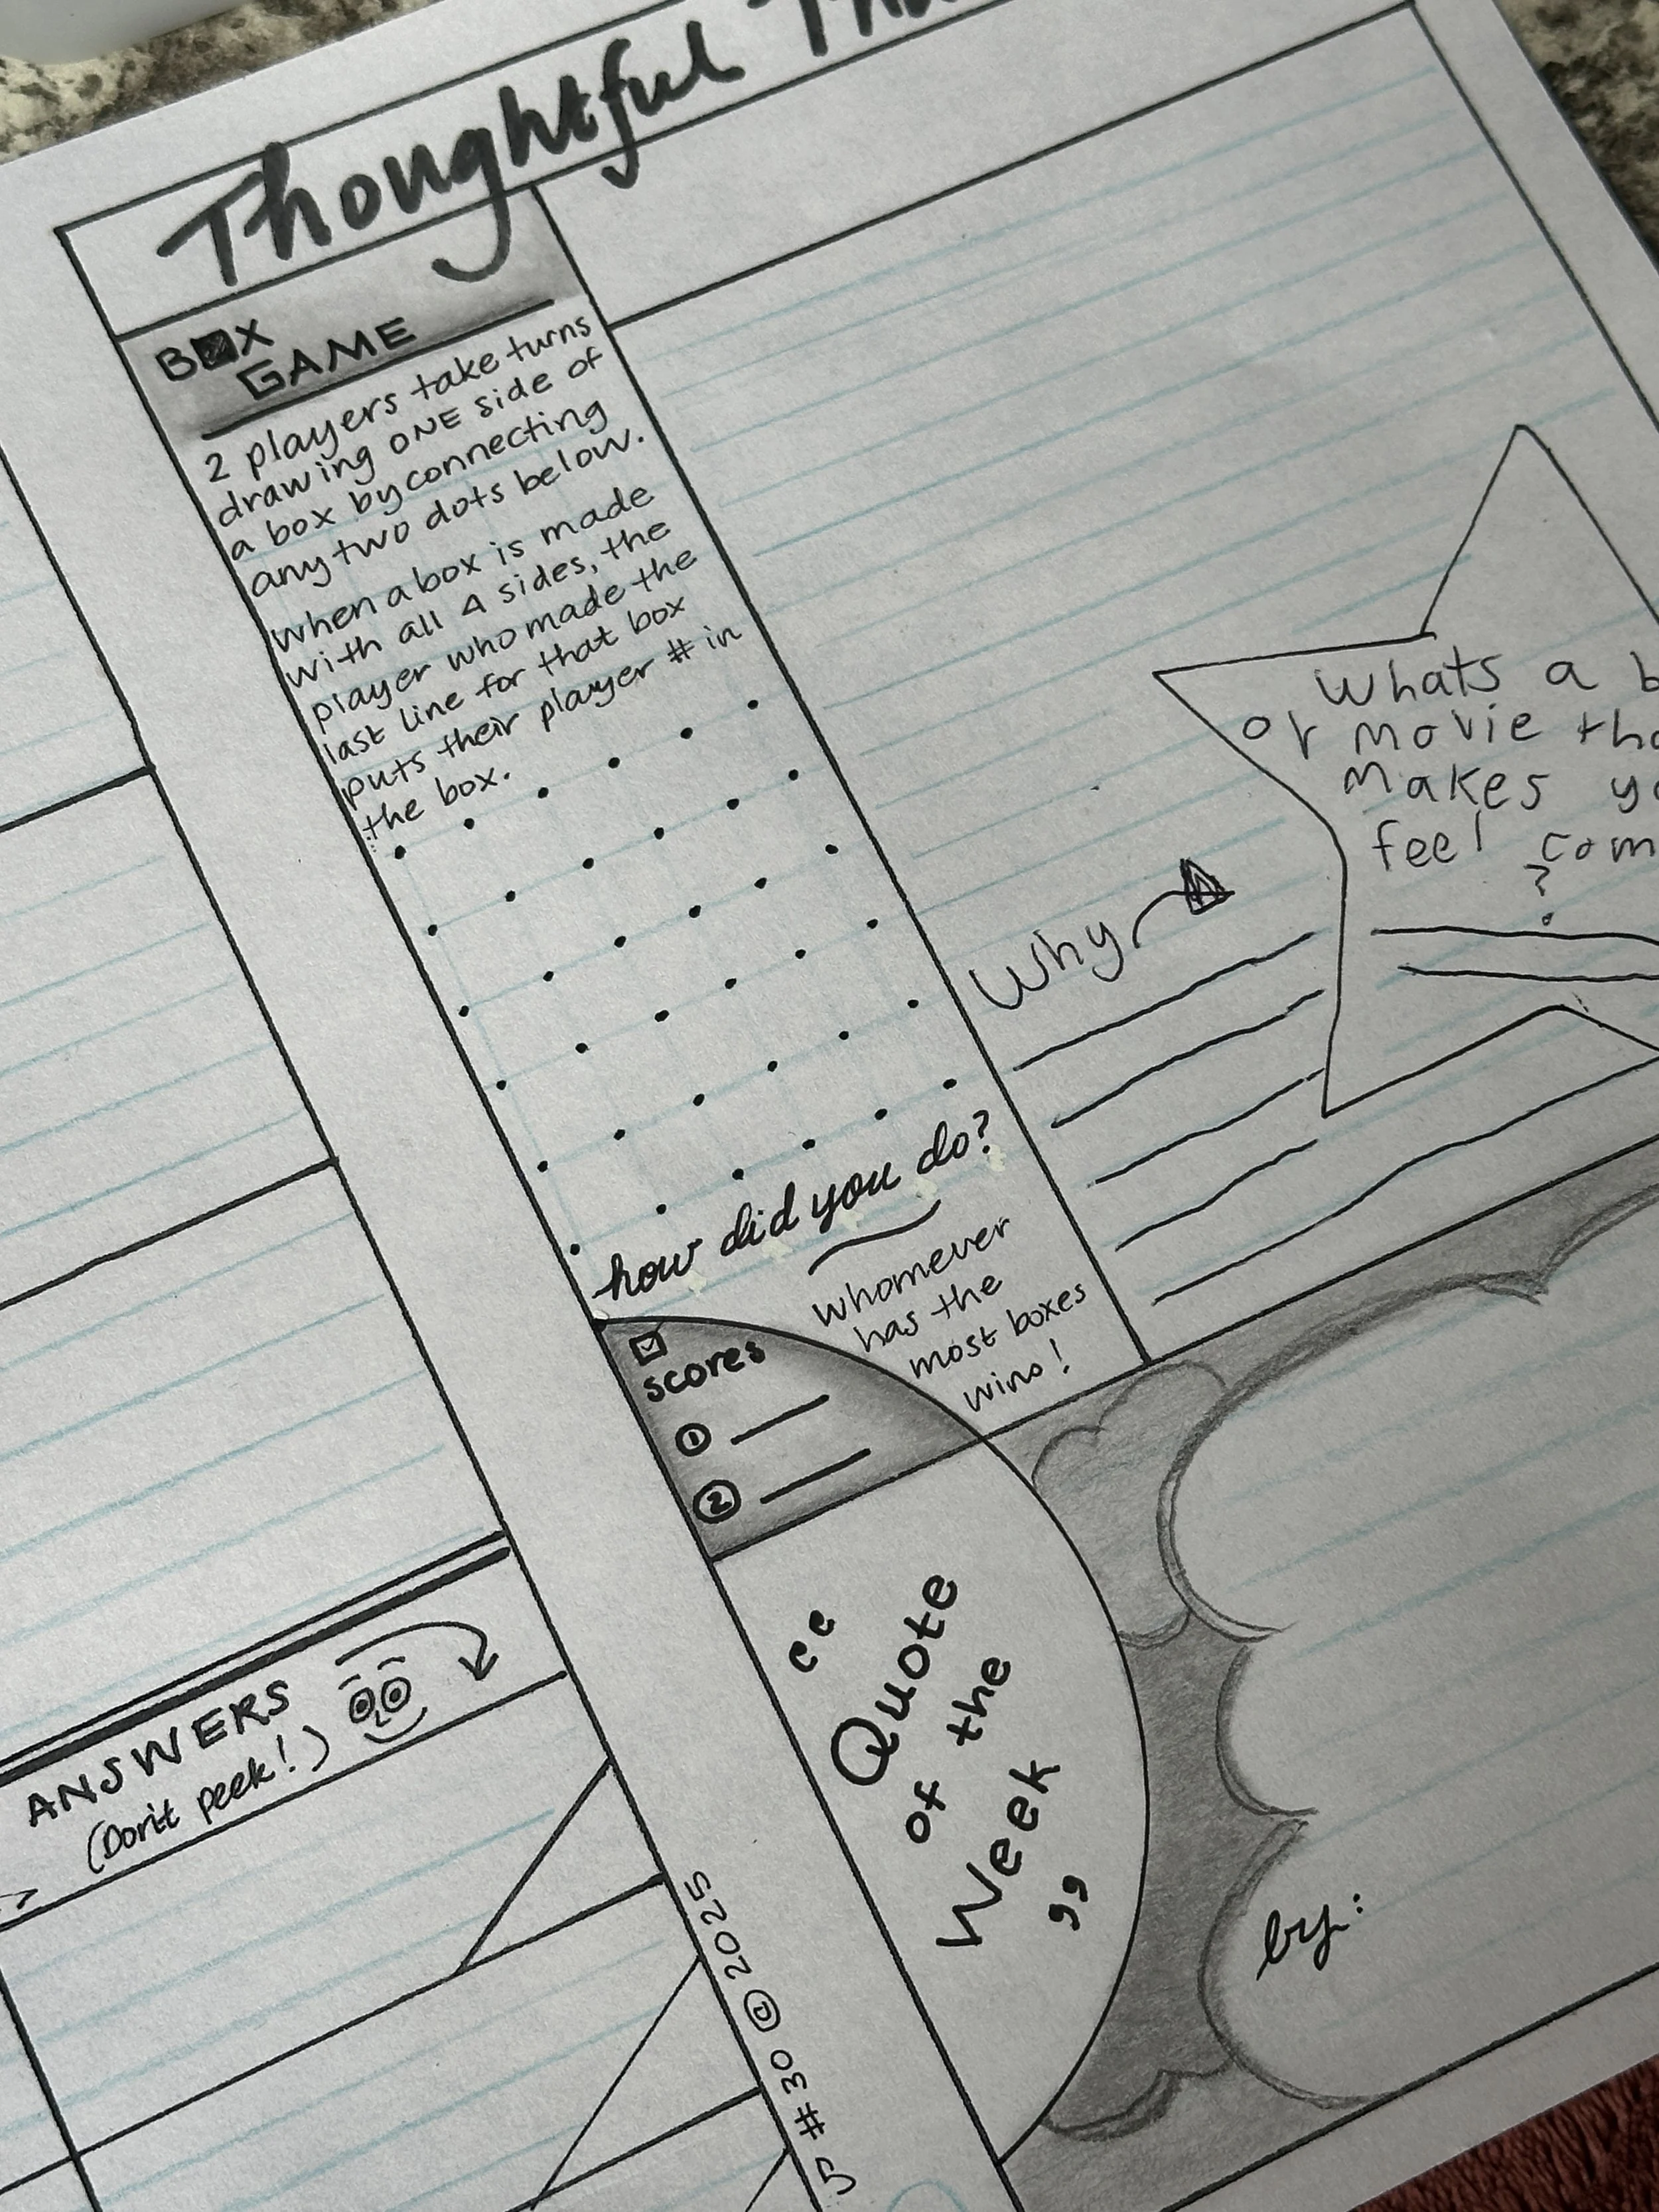 Thoughtful
BOX
GAME
2 players take turns
drawing ONE side of
a box by connecting
any two dots below.
when a box is made
with all 4 sides, the
player who made the
last line for that box
puts their player # in
the box.
how did you do?
whomever
has the
most boxes
wins!
scores
1
2
Whats a
or movie
makes
feel
?
Why
“
Quote
of the
Week
”
by:
ANSWERS
(Don't peek!)
#30 © 2025